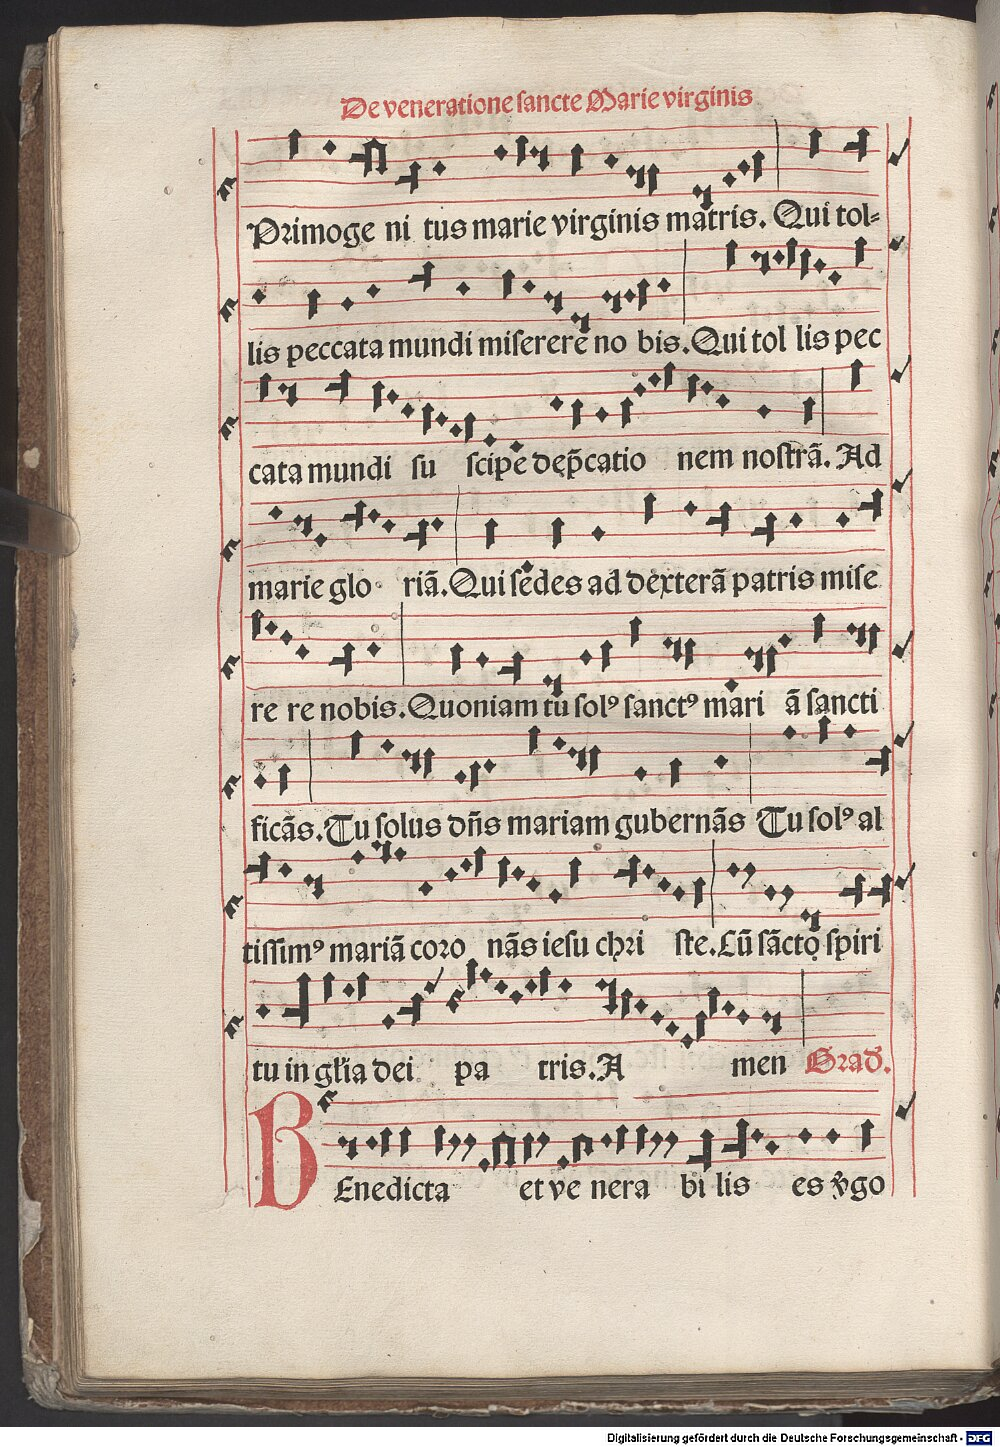 De veneratione sancte Marie virginis
Primoge ni tus marie virginis matris. Qui tol=
lis peccata mundi miserere no bis. Qui tol lis pec
cata mundi su scipe dep̄catio nem nostrā. Ad
marie glo riā. Qui sedes ad dexterā patris mise
re re nobis. Quoniam tu solꝰ sanctꝰ mari ā sancti
ficās. Tu solus dn̄s mariam gubernās Tu solꝰ al
tissimꝰ mariā coro nās iesu chri ste. Cū sācto spiri
tu in gl̄ia dei pa tris. A men Grad̄.
BEnedicta et ve nera bi lis es v̄go
Digitalisierung gefördert durch die Deutsche Forschungsgemeinschaft - DFG